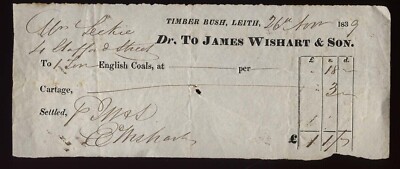 TIMBER BUSH, LEITH, 26th Nov 1839
Mrs Leckie
4 Stafford Street
Dr. TO JAMES WISHART & SON.
£ s. d.
To 1 Ton English Coals, at — per — " 18 "
Cartage, " 3 "
Settled, £ 1 1 "